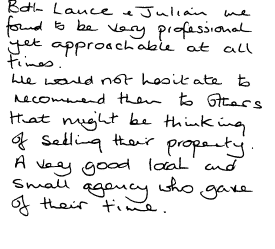 Both Lance & Julian we
found to be very professional
yet approachable at all
times.
We would not hesitate to
recommend them to others
that might be thinking
of selling their property.
A very good local and
small agency who gave
of their time.